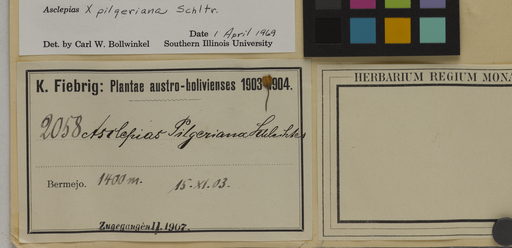 Asclepias X pilgeriana Schltr.
Date 1 April 1969
Det. by Carl W. Bollwinkel Southern Illinois University
K. Fiebrig: Plantae austro-bolivienses 1903-1904.
HERBARIUM REGIUM MONA
2058 Asclepias Pilgeriana Schlechter
Bermejo. 1400 m. 15. XI. 03.
Zugegangen 1907.